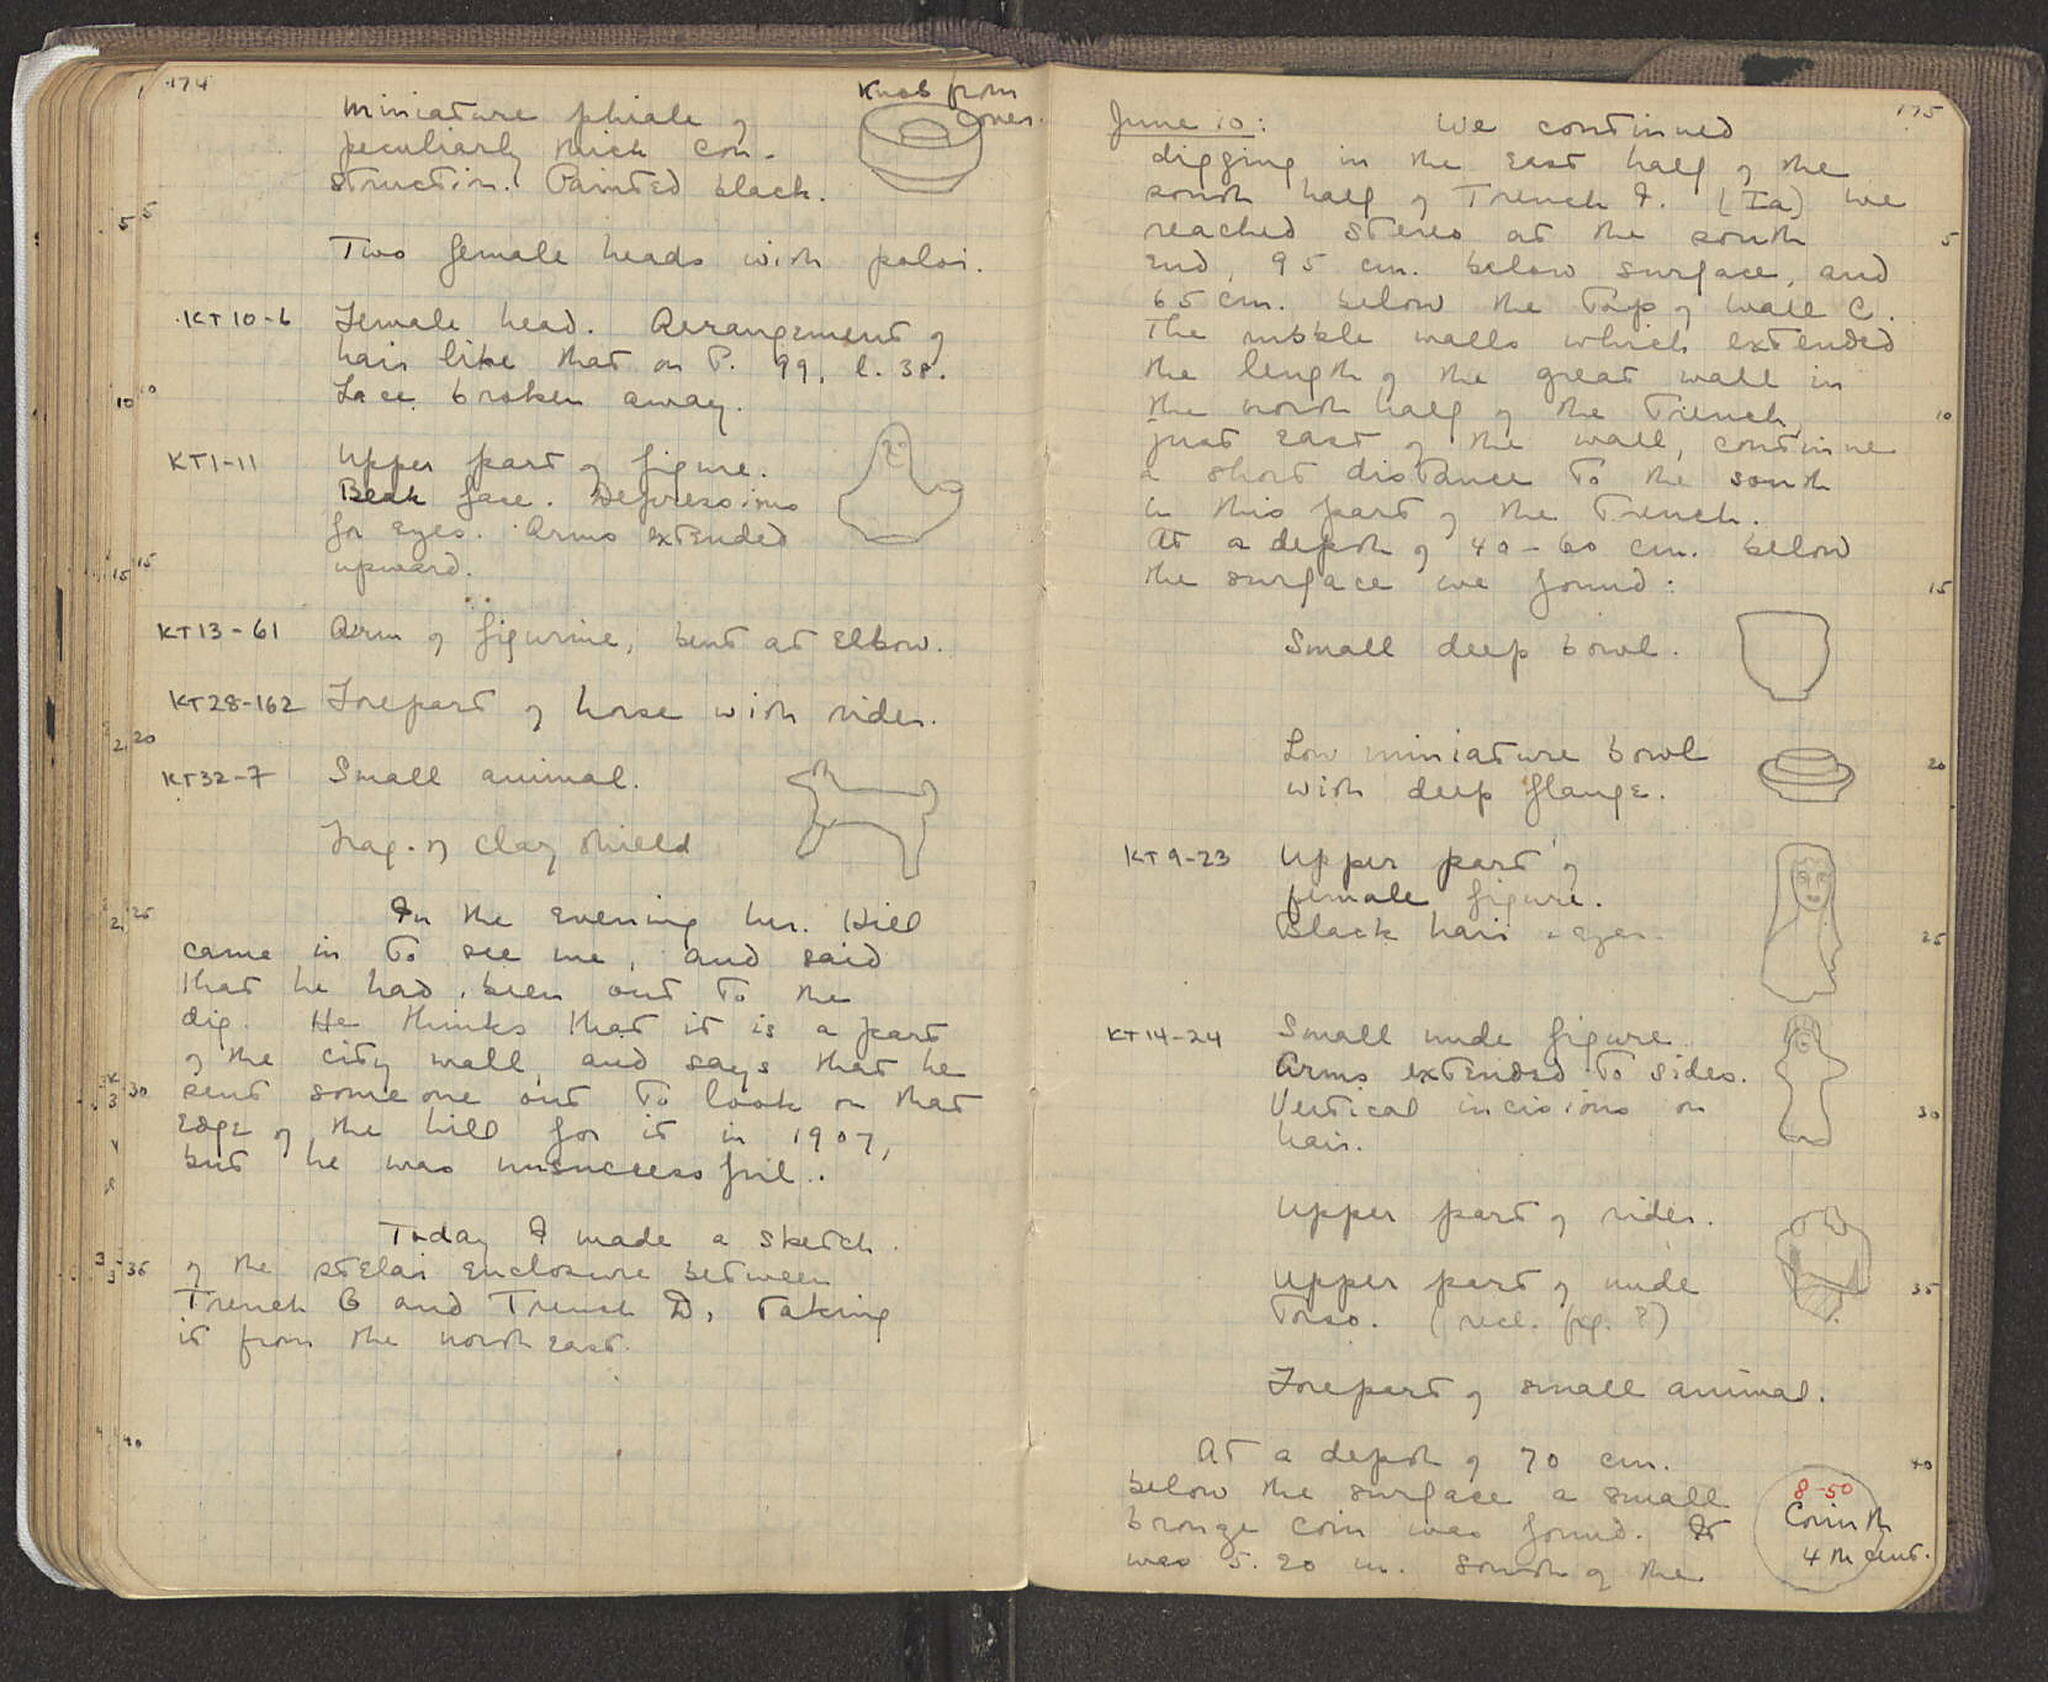 174
Knob from
cover.
Miniature phiale of
peculiarly thick con-
struction. Painted black.
5 5
Two female heads with poloi.
KT10-6 Female head. Arrangement of
hair like that on P. 99, l. 38.
10 10
Face broken away.
KT1-11 Upper part of figure.
Beak face. Depressions
for eyes. Arms extended
15 15
upward.
KT13-61 Arm of figurine, bent at elbow.
KT28-162 Forepart of horse with rider.
20
KT32-7 Small animal.
Frag. of clay shield
25
In the evening Mr. Hill
came in to see me, and said
that he had been out to the
dig. He thinks that it is a part
of the city wall, and says that he
30 sent someone out to look on that
edge of the hill for it in 1907,
but he was unsuccessful.
Today I made a sketch
35 of the stelai enclosure between
Trench B and Trench D, taking
it from the northeast.
40
175
June 10: We continued
digging in the east half of the
south half of Trench I. (Ia) We
reached stereo at the south 5
end, 95 cm. below surface, and
65 cm. below the top of wall C.
The rubble walls which extended
the length of the great wall in
the north half of the trench, 10
just east of the wall, continue
a short distance to the south
in this part of the trench.
At a depth of 40-60 cm. below
the surface we found: 15
Small deep bowl.
Low miniature bowl 20
with deep flange.
KT9-23 Upper part of
female figure.
Black hair + eyes. 25
KT14-24 Small nude figure
Arms extended to sides.
Vertical incisions on 30
hair.
Upper part of rider.
Upper part of nude 35
torso. (recl. fig. ?)
Forepart of small animal.
At a depth of 70 cm. 40
below the surface a small
bronze coin was found. It
was 5.20 m. south of the
8-50
Corinth
4th cent.